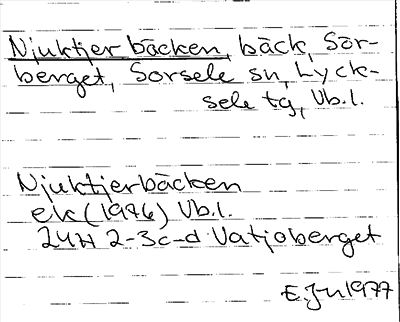 Njuktjerbäcken, bäck, Sör-
berget, Sorsele sn, Lyck-
sele tg, Vb.l.
Njuktjerbäcken
ek (1976) Vb.l.
24H 2-3c-d Vatjoberget
1977